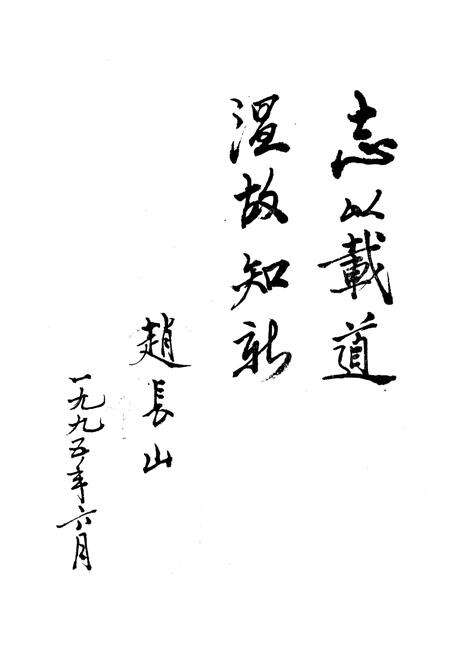 志以載道
温故知新
趙長山
一九九五年六月